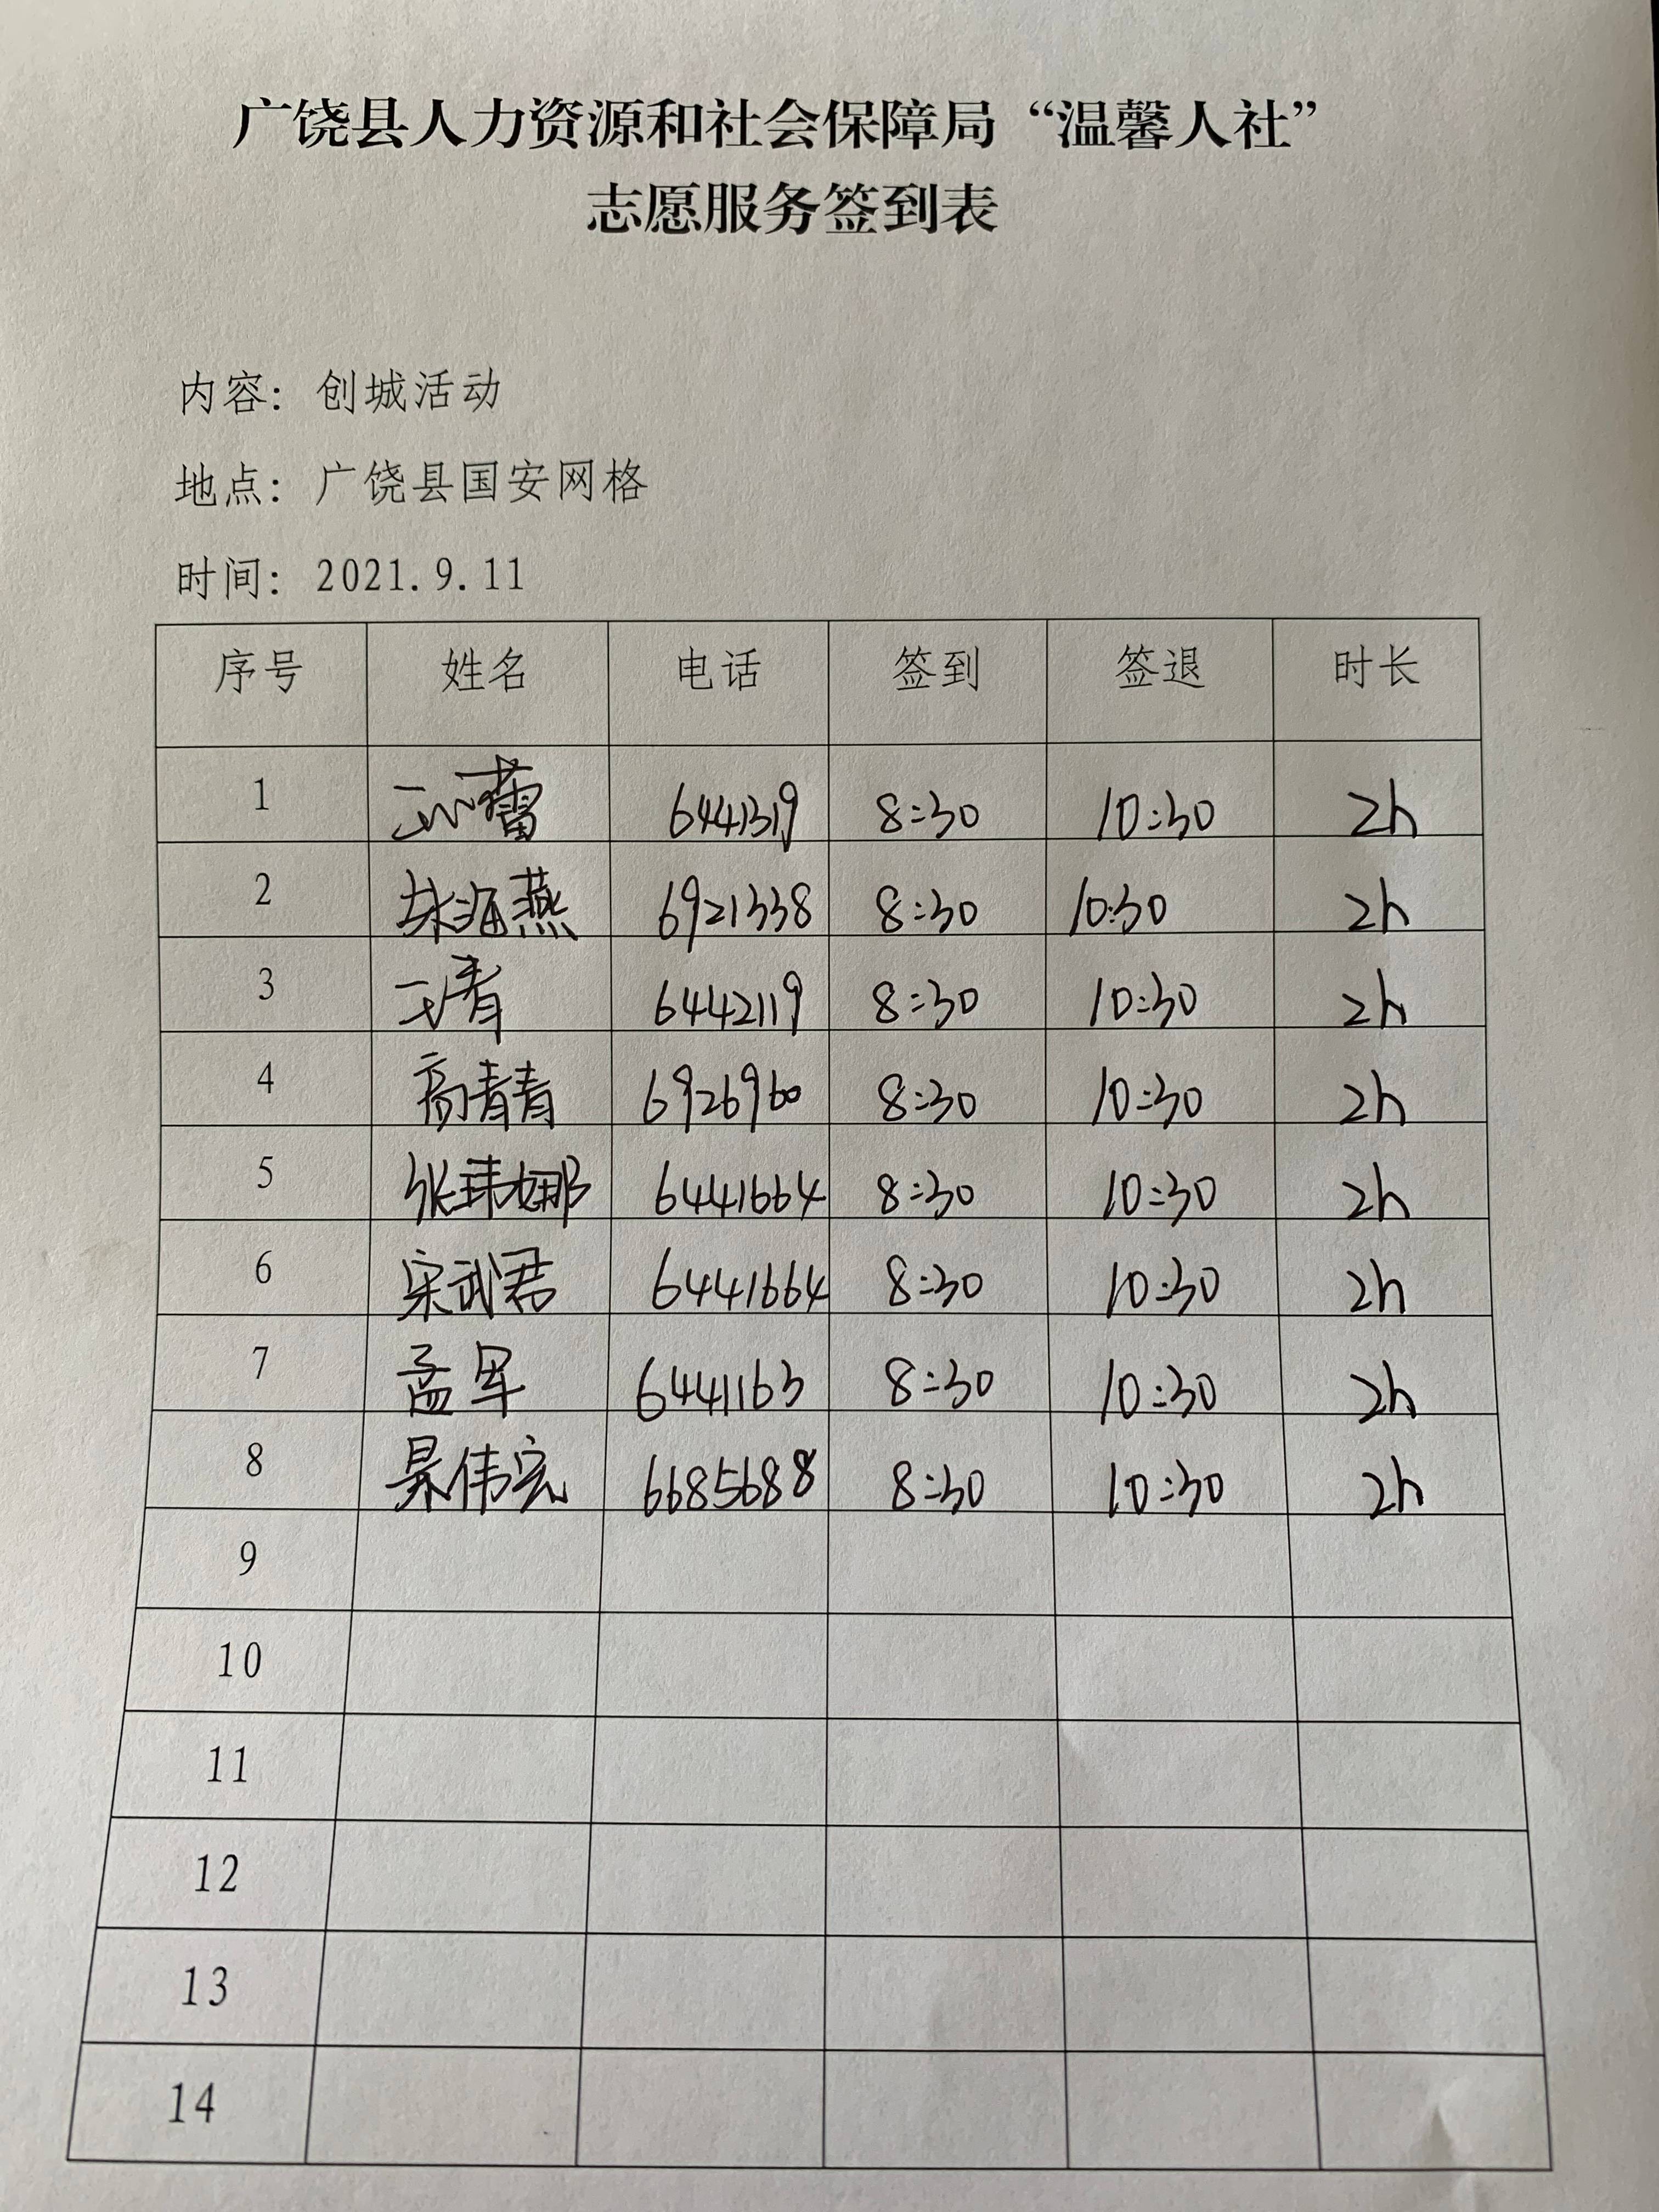 广饶县人力资源和社会保障局“温馨人社”
志愿服务签到表
内容：创城活动
地点：广饶县国安网格
时间：2021.9.11
序号 姓名 电话 签到 签退 时长
1 6441319 8:30 10:30 2h
2 海燕 6921338 8:30 10:30 2h
3 青 6442119 8:30 10:30 2h
4 高青青 6926960 8:30 10:30 2h
5 张玮娜 6441664 8:30 10:30 2h
6 宋武君 6441664 8:30 10:30 2h
7 孟军 6441163 8:30 10:30 2h
8 伟宏 6685688 8:30 10:30 2h
9
10
11
12
13
14